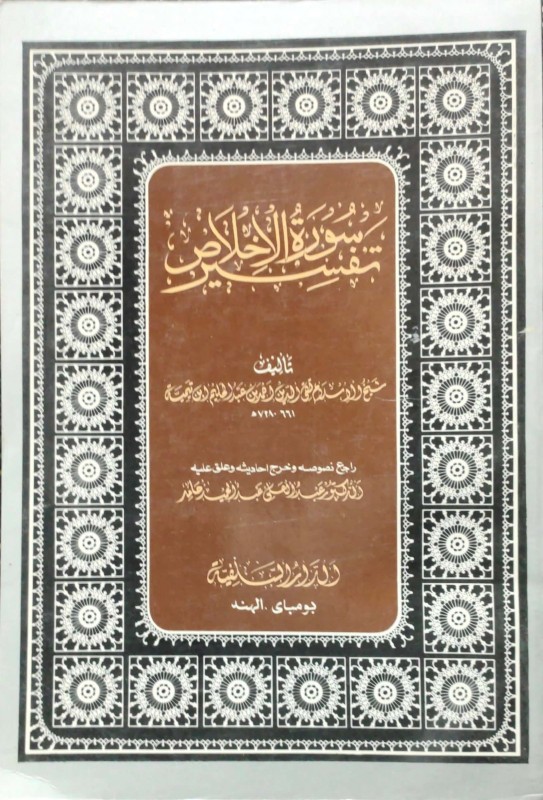 تفسير سورة الإخلاص
تأليف
شيخ الإسلام تقي الدين أحمد بن عبد الحليم ابن تيمية
٦٦١ - ٧٢٨ ه
راجع نصوصه وخرج احاديثه وعلق عليه
الدكتور عبد العلي عبد الحميد حامد
الدار السلفية
بومباي - الهند